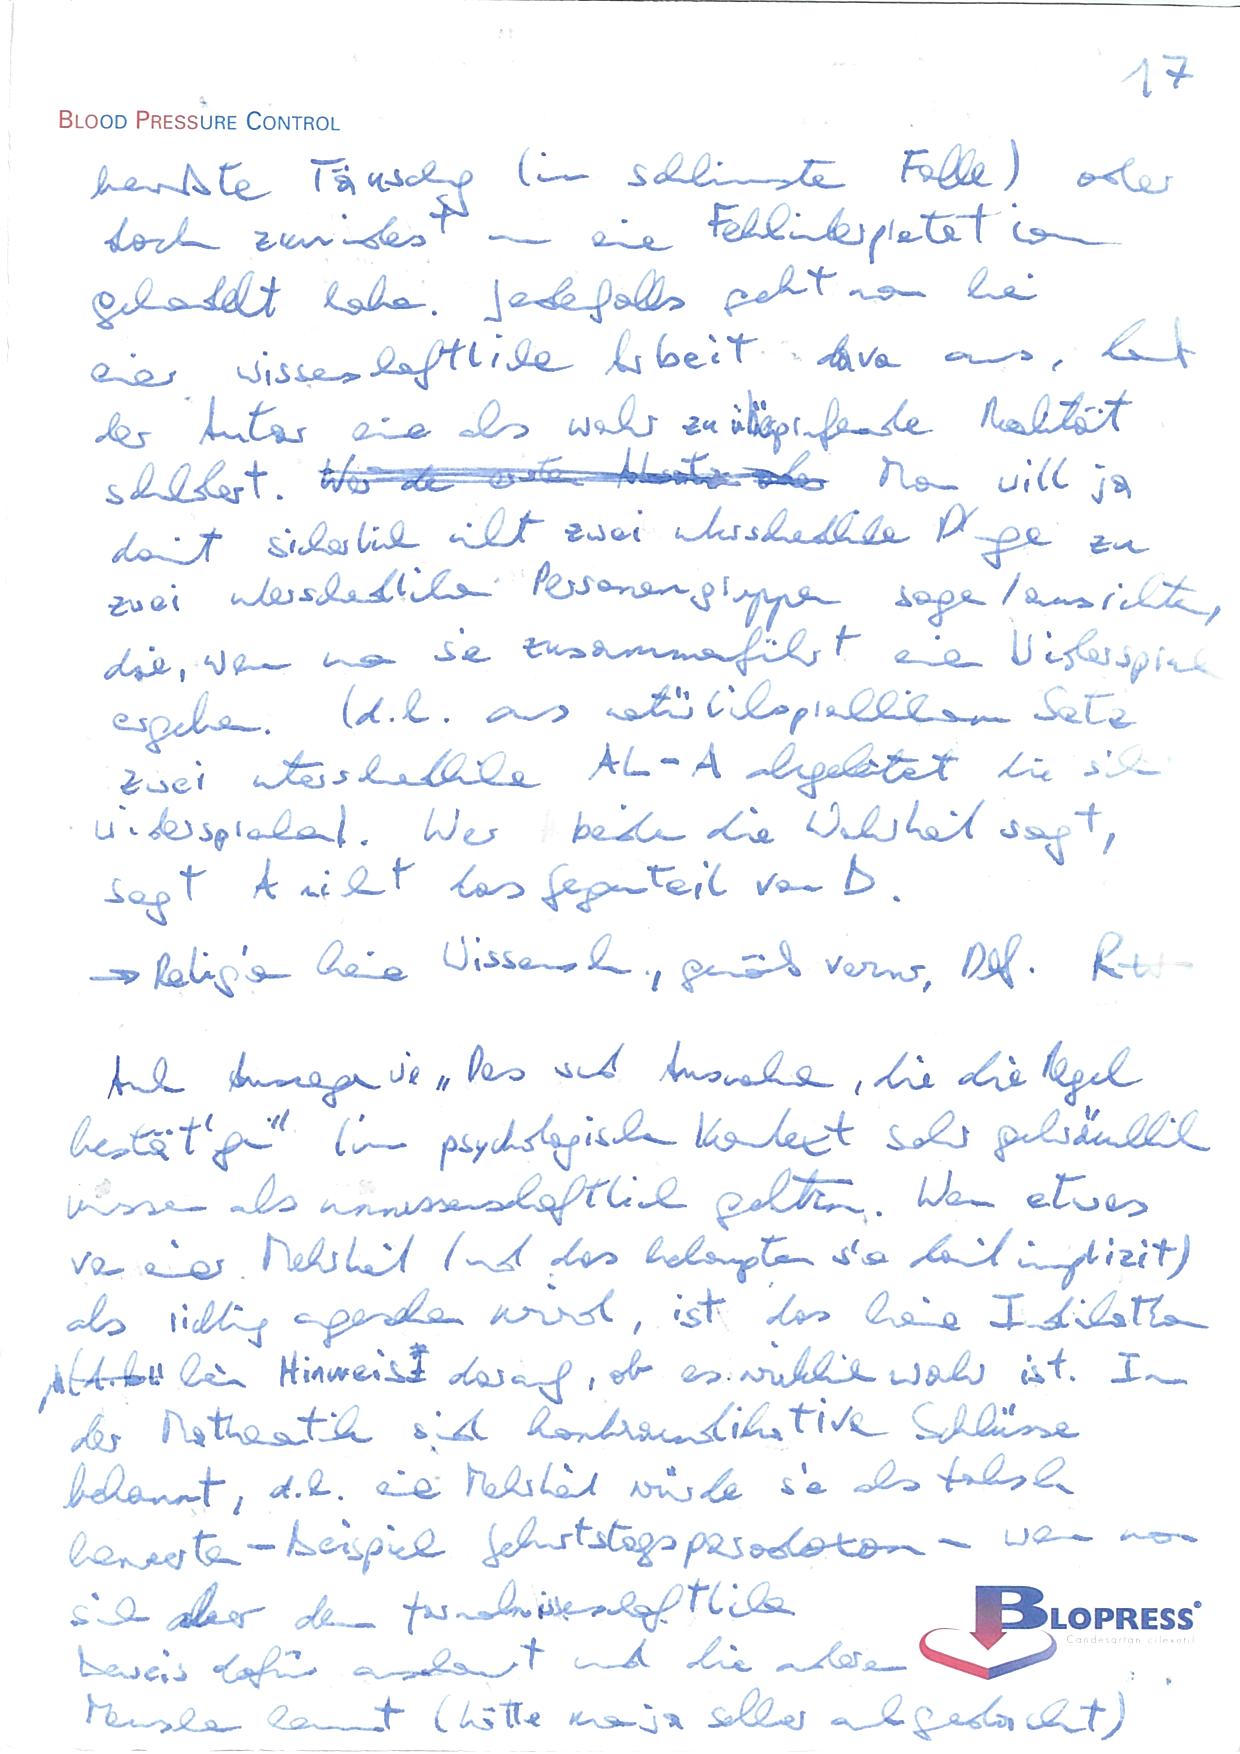 17
BLOOD PRESSURE CONTROL
bewußte Täuschg (im schlimmste Falle) oder
doch zumindest um eine Fehlinterpretation
gehandelt habe. Jedenfalls geht man bei
einer wissenschaftliche Arbeit davon aus, daß
der Autor eine als wahr zu überprüfende Realität
schildert. Man will ja
damit sicherlich nicht zwei unterschiedliche Dinge zu
zwei unterschiedliche Personengruppen sagen/ausrichten,
die, wenn man sie zusammenführt einen Widerspruch
ergeben. (d.h. aus natürlichsprachlichem Satz
zwei unterschiedliche AL-A abgeleitet die sich
widersprechen). Wer beide die Wahrheit sagt,
sagt A nicht das Gegenteil von B.
→ Religion keine Wissensch., gemäß verw. Def.
Auch Aussagen wie „Das sind Ausnahmen, die die Regel
bestätigen" (im psychologischen Kontext sehr gebräuchlich
müssen als unwissenschaftlich gelten. Wenn etwas
von einer Mehrheit (und das behaupten sie damit implizit)
als richtig angesehen wird, ist das keine Indikation
kein Hinweis darauf, ob es wirklich wahr ist. In
der Mathematik sind kontraindikative Schlüsse
bekannt, d.h. eine Mehrheit würde sie als falsch
bewerten – Beispiel Geburtstagsparadoxon – wenn man
sich aber den formalwissenschaftliche
Beweis dafür anschaut und die andere
Menschen kennt (hätte man ja selber auch gedacht)
BLOPRESS®
Candesartan cilexetil